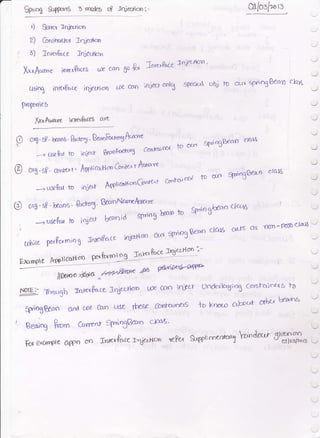 Spring Supports 3 modes of Injection:-
02/03/2013
1) Setter Injection
2) Constructor Injection
3) Interface Injection
XxxAware interfaces we can go for Interface Injection.
Using interface injection we can inject only special obj to our SpringBean class
properties
XxxAware interfaces are
① org.sf.beans.factory.BeanFactoryAware
→ useful to inject BeanFactory Container to our SpringBean class
② org.sf.context.ApplicationContextAware
→ useful to inject ApplicationContext container to our SpringBean class
③ org.sf.beans.factory.BeanNameAware
→ useful to inject bean id spring bean to Springbean class
while performing Interface injection our Spring Bean class acts as non-POJO class
Example Application performing Interface Injection :-
NOTE:- Through Interface Injection we can inject Underlaying containers to
SpringBean and we can use these containers to know about other beans
Bearing from Current SpringBean class.
For example appn on Interface Injection refer Supplimentary handout given on
02/03/2013